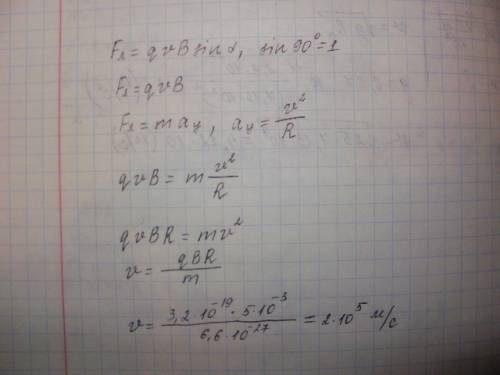 Fл = qvB sin α, sin 90° = 1
Fл = qvB
Fл = m aц, aц = v²/R
qvB = m v²/R
qvBR = mv²
v = qBR/m
v = 3,2·10⁻¹⁹·5·10⁻³/6,6·10⁻²⁷ = 2·10⁵ м/с